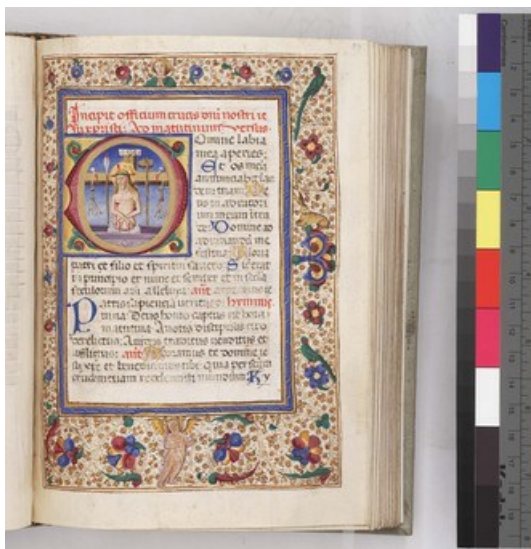 Incipit officium crucis dni nostri ie
su xpisti. Ad matutinum versus
Omine labia
mea aperies:
Et os meu
annunciabit lau
dem tuam. De
us in adiutori
um meum inte
de. Domine ad
adiuvandum me
festina. Gloria
patri et filio et spiritui sancto. Sicut erat
in principio et nunc et semper et in secula
seculorum am alleluia. ant
Patris sapiencia veritas hymnus.
divina. Deus homo captus est hora
matutina. A notis discipulis cito
derelictus. A iudeis traditus venditus et
afflictus. ant Adoramus te domine ie
su xpe et benedicimus tibi quia per sctam
crucem tuam redemisti mundum. Ky